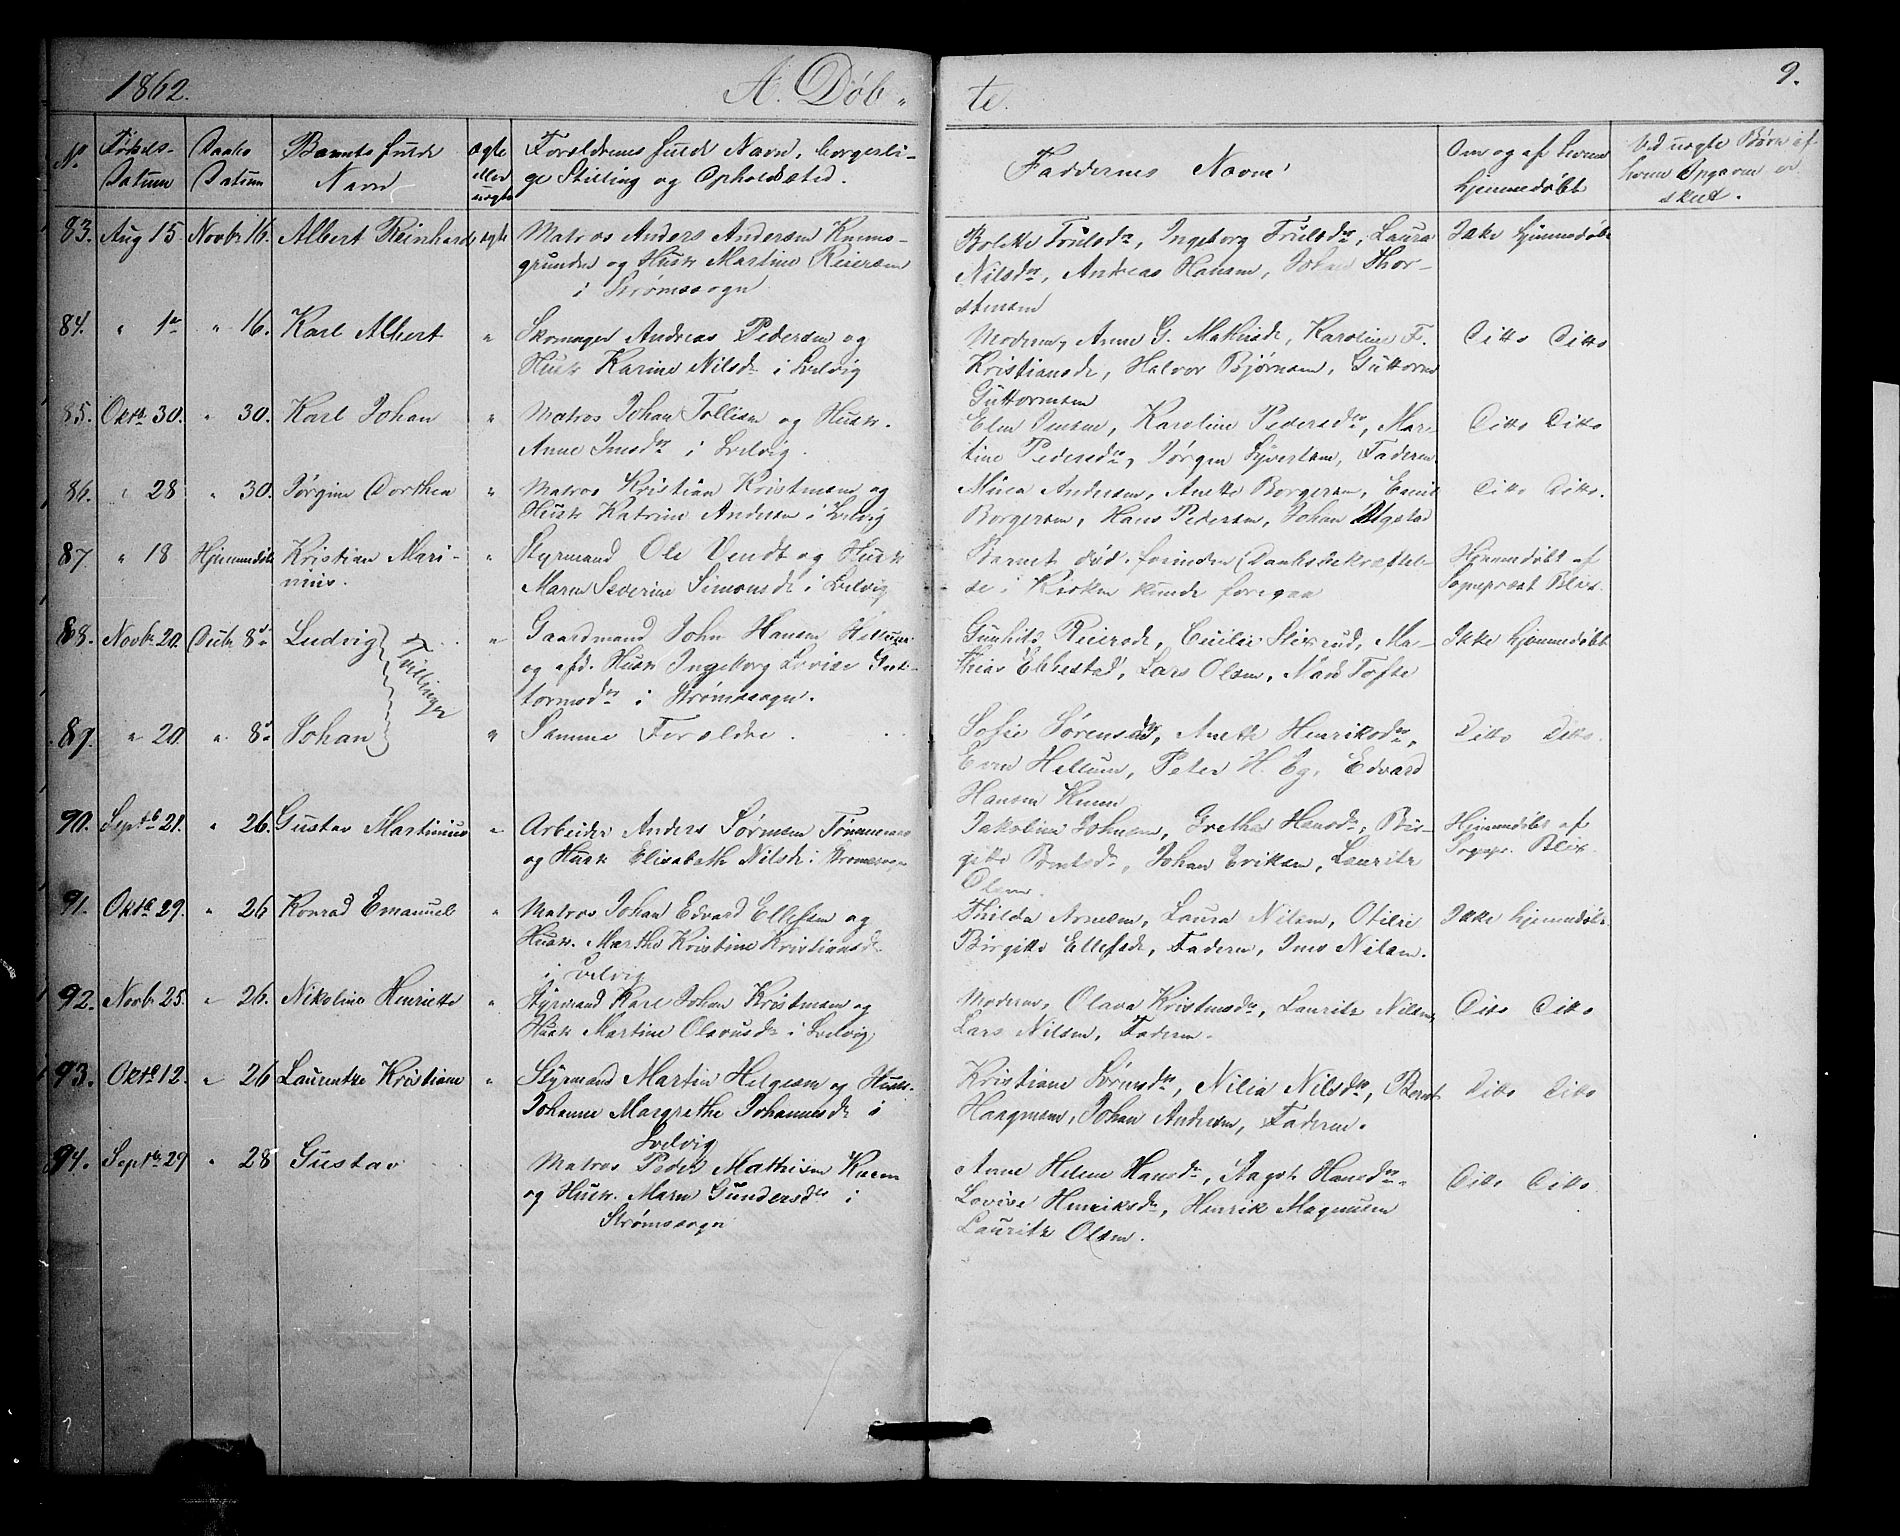 1862. A. Døb- te. 9.
No. Fødsels- Datum Daabs Datum Barnets fulde Navn ægte eller uægte Forældrenes fulde Navn, borgerli-
ge Stilling og Opholdssted. Faddernes Navne Om og af hvem hjemmedøbt Ved uægte Børn af hvem Angivelsen er skeet.
83. Aug 15 Novbr 16. Albert Reinhard ægte Matros Anders Andersen
og Hustr Martine Reiersen
i Strømssogn
Ingeborg Trulsdr, Laura
Nilsdr, Andreas Hansen, Johan Thor-
stensen
Ikke hjemmedøbt
84. " 1ste " 16. Karl Albert " Skomager Andreas Pedersen og
Hustr Karine Nilsdr i Svelvig
Moderen, Anne G. Karoline F.
Kristiansdr, Halvor Bjørnsen, Guttorm
Guttormsen
Ditto Ditto
85. Oktb. 30. " 30. Karl Johan " Matros Johan Tollisen og Hustr.
Anne Jensdr i Svelvig.
Jensen, Karoline Pedersdr, Mar-
tine Pedersdr, Jørgen Syvertsen, Faderen.
Ditto Ditto
86. " 28 " 30. Jørgine Dorthea " Matros Kristian Kristensen og
Hustr Katrine Andersen i Svelvig
Andersen, Anette Borgersen,
Borgersen, Hans Pedersen, Johan
Ditto Ditto.
87. " 18 Hjemmedøbt Kristian Mari-
nius. " Styrmand Ole Wendt og Hustr
Maren Severine Simonsdr i Svelvig
Barnet død, forinden Daabsbekræftel-
se i Kirken kunde foregaa
Hjemmedøbt af
Sognepræst Blix.
88. Novbr 20. Decbr 8de Ludvig } Tvillinger " Gaardmand John Hansen Hellum
og afd. Hustr Ingeborg Lovise Gut-
tormsdr i Strømssogn.
Gunhild Reiersdr, Cecilie Ma-
thias Ebbestad, Lars Olsen, Tofte
Ikke hjemmedøbt
87. " 20. " 8de Johan } " Samme Forældre.
Sofie Sørensdr, Anette Henriksdr,
Even Hellum, Peter H. Eg, Edvard
Hansen
Ditto Ditto.
90. Septb 21. " 26. Gustav Martinius " Arbeider Anders Sørensen
og Hustr Elisabeth Nilsdr i Strømssogn
Jakobine Johnsen, Grethe Hansdr, Bir-
gitte Berntsdr, Johan Eriksen, Lauritz
Olsen.
Hjemmedøbt af
Sognepr. Blix.
91. Oktb 29. " 26 Konrad Emanuel " Matros Johan Edvard Ellefsen og
Hustr. Marthe Kristine Kristiansdr
i Svelvig
Thilda Arnesen, Laura Nilsen, Otilie
Birgitte Ellefsdr, Faderen, Jens Nilsen.
Ikke hjemmedøbt.
92. Novbr 25. " 26. Nikoline Henriette " Styrmand Karl Johan Kristensen og
Hustr Martine Olavusdr i Svelvig
Moderen, Olava Kristensdr, Lauritz Nilsen,
Lars Nilsen, Faderen.
Ditto Ditto
93. Oktb 12. " 26 Laurentze Kristiane " Styrmand Martin Helgesen og Hustr.
Johanne Margrethe Johannesdr i
Svelvig
Kristiane Sørensdr, Nilia Nilsdr, Bernt
Haagensen, Johan Andersen, Faderen.
Ditto Ditto
94. Septb 29 " 28 Gustav Matros Peder Mathisen
og Hustr. Maren Gundersdr i
Strømssogn
Anne Helene Hansdr, Aagot Hansdr,
Lovise Henriksdr, Henrik Magnusen
Lauritz Olsen.
Ditto Ditto